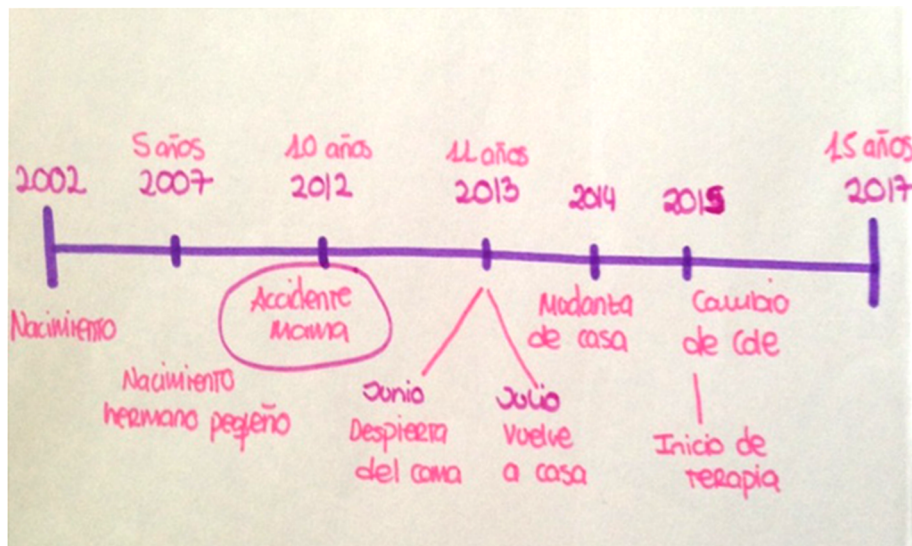 5 años
10 años
11 años
15 años
2002
2007
2012
2013
2014
2015
2017
Nacimiento
Nacimiento
hermano pequeño
Accidente
Mama
Junio
Despierta
del coma
Julio
Vuelve
a casa
Mudanza
de casa
Cambio
de cole
Inicio de
terapia